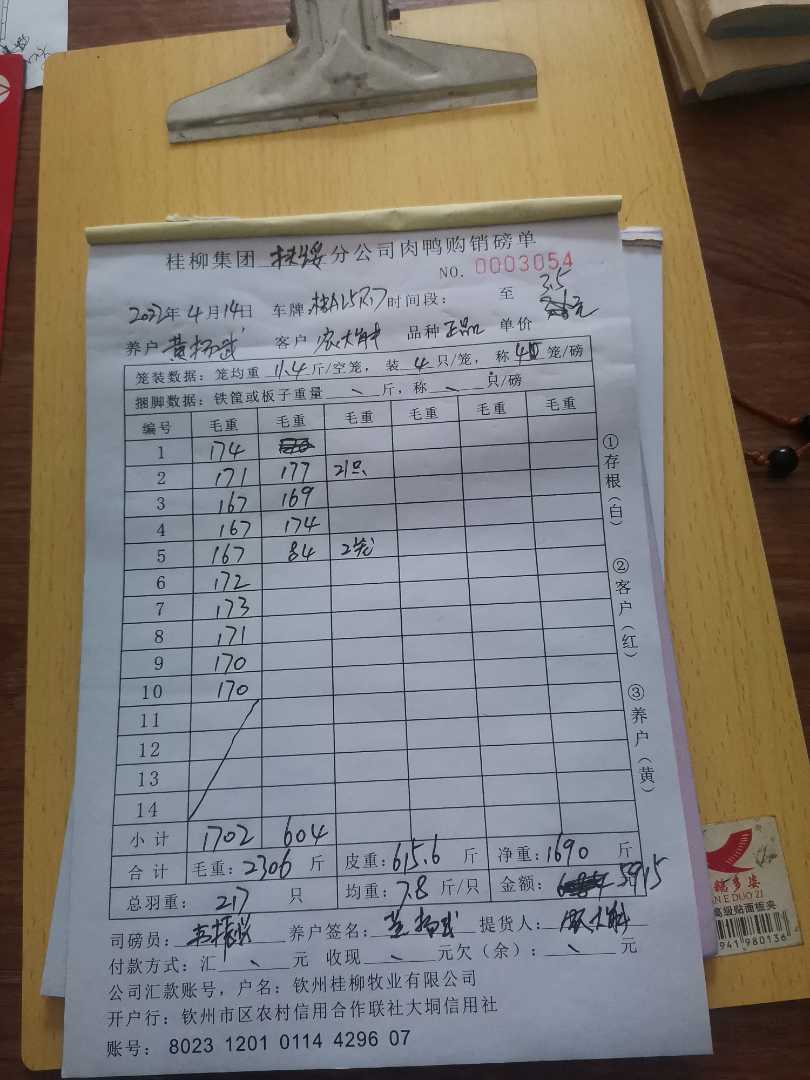 桂柳集团 扶绥 分公司肉鸭购销磅单
NO. 0003054
2022年4月14日 车牌 时间段: 至 3.5
养户 黄杨武 客户 品种 正品 单价 元
笼装数据: 笼均重 11.4 斤/空笼, 装 4 只/笼, 称 笼/磅
捆脚数据: 铁筐或板子重量 、 斤, 称 、 只/磅
编号 毛重 毛重 毛重 毛重 毛重 毛重
1 174
2 171 177 21只
3 167 169
4 167 174
5 167 84 2笼
6 172
7 173
8 171
9 170
10 170
11
12
13
14
小计 1702 604
合计 毛重: 2306 斤 皮重: 615.6 斤 净重: 1690 斤
总羽重: 217 只 均重: 7.8 斤/只 金额: 5915
司磅员: 养户签名: 黄杨武 提货人:
付款方式: 汇 、 元 收现 、 元欠(余): 、 元
公司汇款账号, 户名: 钦州桂柳牧业有限公司
开户行: 钦州市区农村信用合作联社大垌信用社
账号: 8023 1201 0114 4296 07
①存根(白)
②客户(红)
③养户(黄)
多姿
高级贴面板夹
941 980136